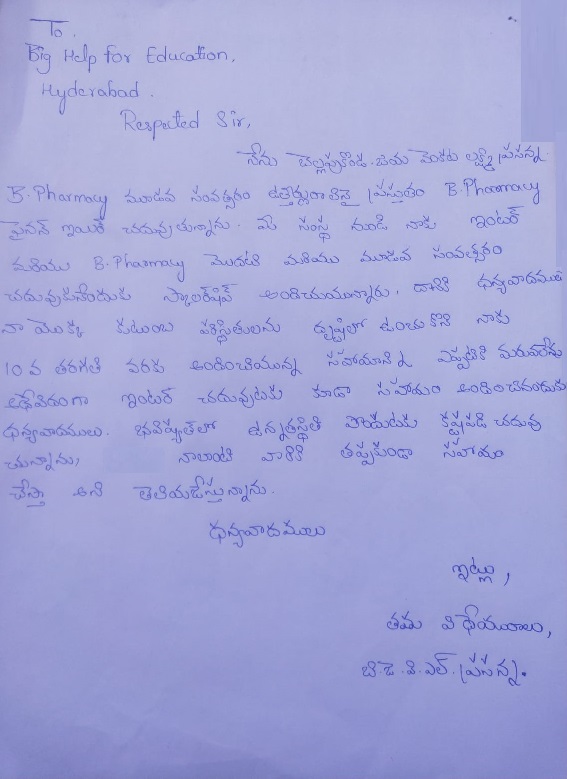 To,
Big Help for Education,
Hyderabad.
Respected Sir,
నేను చెల్లపుకొండ. జయ వెంకట లక్ష్మీ ప్రసన్న
B.Pharmacy మూడవ సంవత్సరం ఉత్తీర్ణురాలినై ప్రస్తుతం B.Pharmacy
ఫైనల్ ఇయర్ చదువుతున్నాను. మీ సంస్థ నుండి నాకు ఇంటర్
మరియు B-Pharmacy మొదటి మరియు మూడవ సంవత్సరం
చదువుకునేందుకు స్కాలర్‌షిప్ అందించుయున్నారు. దానికి ధన్యవాదములు
నా యొక్క కుటుంబ పరిస్థితులను దృష్టిలో ఉంచుకొని నాకు
10 వ తరగతి వరకు అందించియున్న సహాయాన్ని ఎప్పటికి మరువలేను
అదేవిధంగా ఇంటర్ చదువుటకు కూడా సహాయం అందించినందుకు
ధన్యవాదములు. భవిష్యత్‌లో ఉన్నతస్థితి పొందుటకు కష్టపడి చదువు
చున్నాను, నాలాంటి వారికి తప్పకుండా సహాయం
చేస్తా అని తెలియజేస్తున్నాను.
ధన్యవాదములు
ఇట్లు,
తమ విధేయురాలు,
చి.జె.వి.ఎల్.ప్రసన్న.